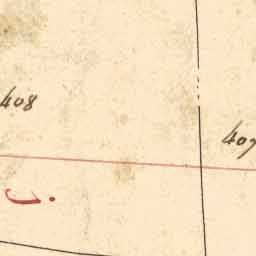 408
407